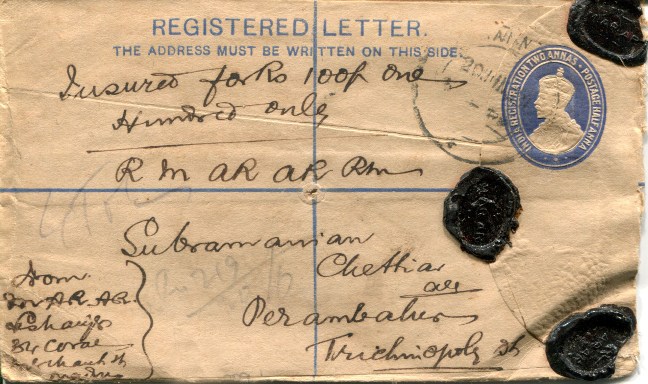 REGISTERED LETTER.
THE ADDRESS MUST BE WRITTEN ON THIS SIDE.
INDIA REGISTRATION TWO ANNAS · POSTAGE HALF ANNA
Insured for Rs 100/- One
Hundred only
R M AR AR Rm
Subramanian
Chettiar
Perambalur
Trichinopoly Dt
From
AR. AR.